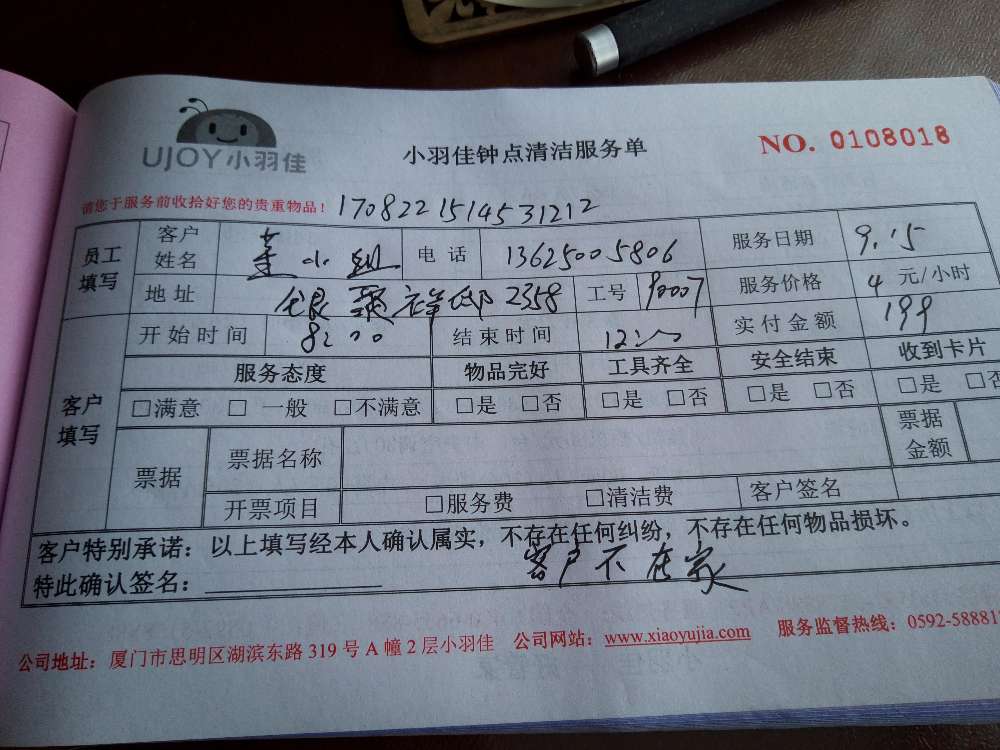 UJOY小羽佳
小羽佳钟点清洁服务单
NO. 0108018
请您于服务前收拾好您的贵重物品！ 170822151453 1212
员工填写 客户姓名 小 电话 13625005806 服务日期 9.15
地址 2358 工号 90007 服务价格 4 元/小时
开始时间 8:00 结束时间 12:00 实付金额 199
客户填写 服务态度 物品完好 工具齐全 安全结束 收到卡片
□满意 □ 一般 □不满意 □是 □否 □是 □否 □是 □否 □是 □否
票据 票据名称 票据金额
开票项目 □服务费 □清洁费 客户签名
客户特别承诺：以上填写经本人确认属实，不存在任何纠纷，不存在任何物品损坏。
特此确认签名： 客户不在家
公司地址：厦门市思明区湖滨东路 319 号 A 幢 2 层小羽佳 公司网站：www.xiaoyujia.com 服务监督热线：0592-58881